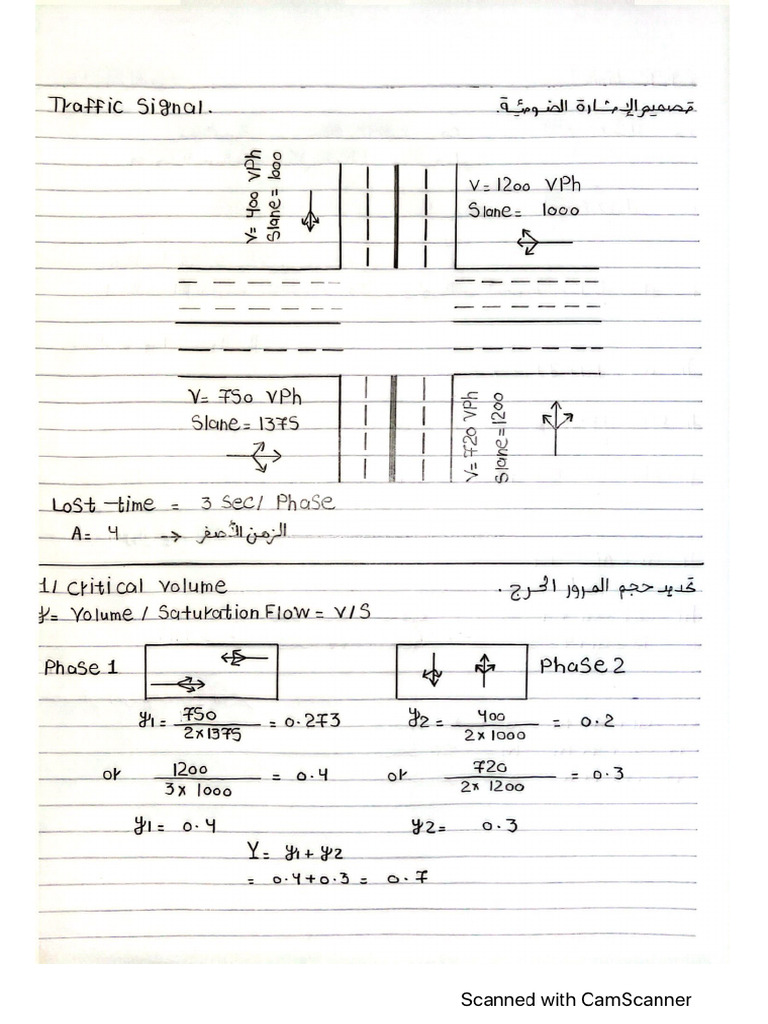 Traffic Signal.
تصميم الإشارة الضوئية.
V= 400 VPh
Slane= 1000
V= 1200 VPh
Slane= 1000
V= 750 VPh
Slane= 1375
V= 720 VPh
Slane=1200
Lost-time = 3 Sec/ Phase
A= 4 → الزمن الأصفر
1/ Critical Volume
تحديد حجم المرور الحرج.
y= Volume / Saturation Flow = V/S
Phase 1
Phase 2
y1= 750 / 2x1375 = 0.273
y2= 400 / 2x1000 = 0.2
or 1200 / 3x1000 = 0.4
or 720 / 2x1200 = 0.3
y1= 0.4
y2= 0.3
Y= y1+y2
= 0.4+0.3= 0.7
Scanned with CamScanner